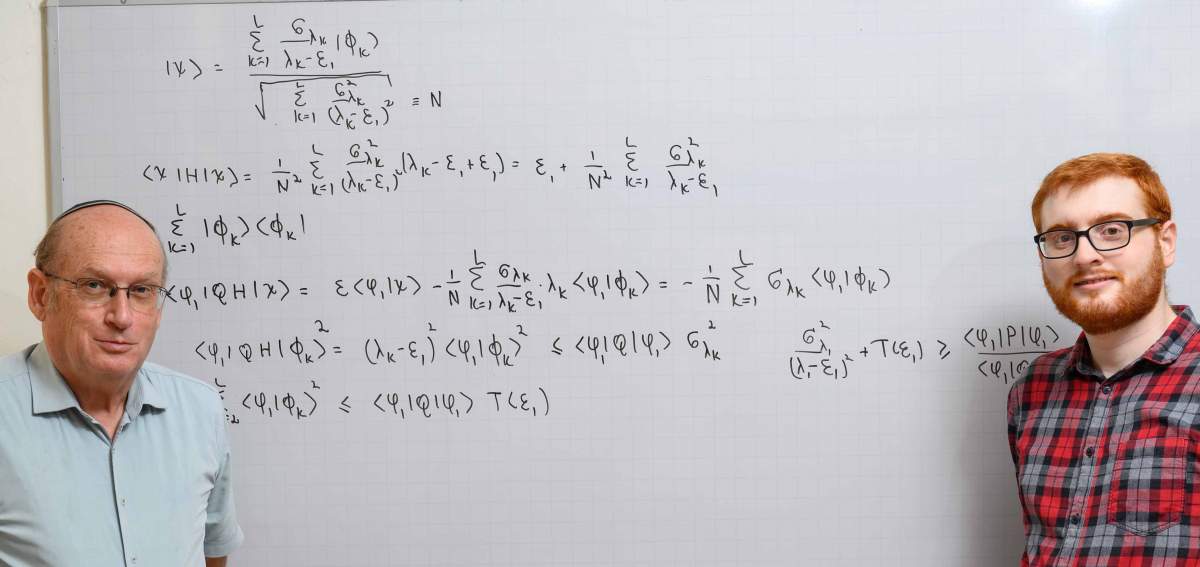 |χ⟩ = \frac{\sum_{k=1}^{L} \frac{σ_{λ_k}}{λ_k - ε_1} |ϕ_k⟩}{\sqrt{\sum_{k=1}^{L} \frac{σ_{λ_k}^2}{(λ_k - ε_1)^2}}} ≡ N
⟨χ|H|χ⟩ = \frac{1}{N^2} \sum_{k=1}^{L} \frac{σ_{λ_k}^2}{(λ_k - ε_1)^2} (λ_k - ε_1 + ε_1) = ε_1 + \frac{1}{N^2} \sum_{k=1}^{L} \frac{σ_{λ_k}^2}{λ_k - ε_1}
\sum_{k=1}^{L} |ϕ_k⟩⟨ϕ_k|
⟨φ_1|QH|χ⟩ = ε⟨φ_1|χ⟩ - \frac{1}{N} \sum_{k=1}^{L} \frac{σ_{λ_k}}{λ_k - ε_1} · λ_k ⟨φ_1|ϕ_k⟩ = - \frac{1}{N} \sum_{k=1}^{L} σ_{λ_k} ⟨φ_1|ϕ_k⟩
⟨φ_1|QH|ϕ_k⟩^2 = (λ_k - ε_1)^2 ⟨φ_1|ϕ_k⟩^2 ≤ ⟨φ_1|Q|φ_1⟩ σ_{λ_k}^2
\frac{σ_{λ_1}^2}{(λ_1 - ε_1)^2} + T(ε_1) ≥ \frac{⟨φ_1|P|φ_1⟩}{⟨φ_1|Q
⟨φ_1|ϕ_k⟩^2 ≤ ⟨φ_1|Q|φ_1⟩ T(ε_1)